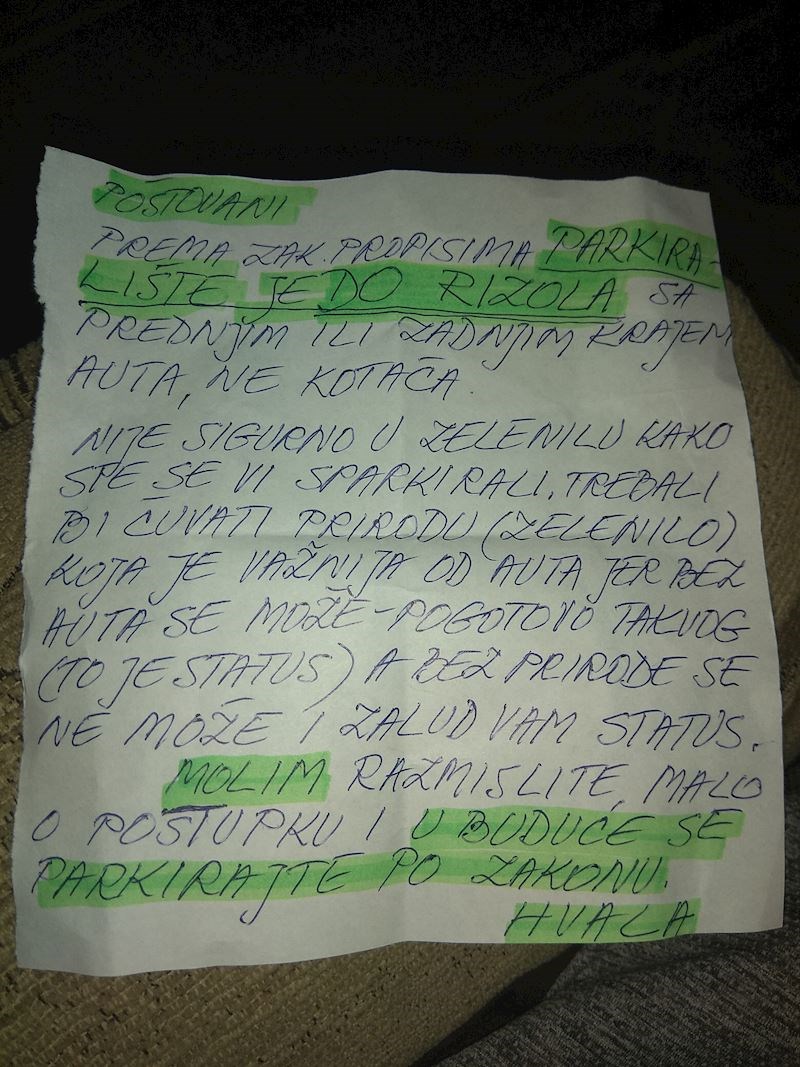 POŠTOVANI
PREMA ZAK. PROPISIMA PARKIRA-
LIŠTE JE DO RIZOLA SA
PREDNJIM ILI ZADNJIM KRAJEM
AUTA, NE KOTAČA
NIJE SIGURNO U ZELENILU KAKO
STE SE VI SPARKIRALI. TREBALI
BI ČUVATI PRIRODU (ZELENILO)
KOJA JE VAŽNIJA OD AUTA JER BEZ
AUTA SE MOŽE - POGOTOVO TAKVOG
(TO JE STATUS) A BEZ PRIRODE SE
NE MOŽE I ZALUD VAM STATUS.
MOLIM RAZMISLITE MALO
O POSTUPKU I U BUDUĆE SE
PARKIRAJTE PO ZAKONU.
HVALA